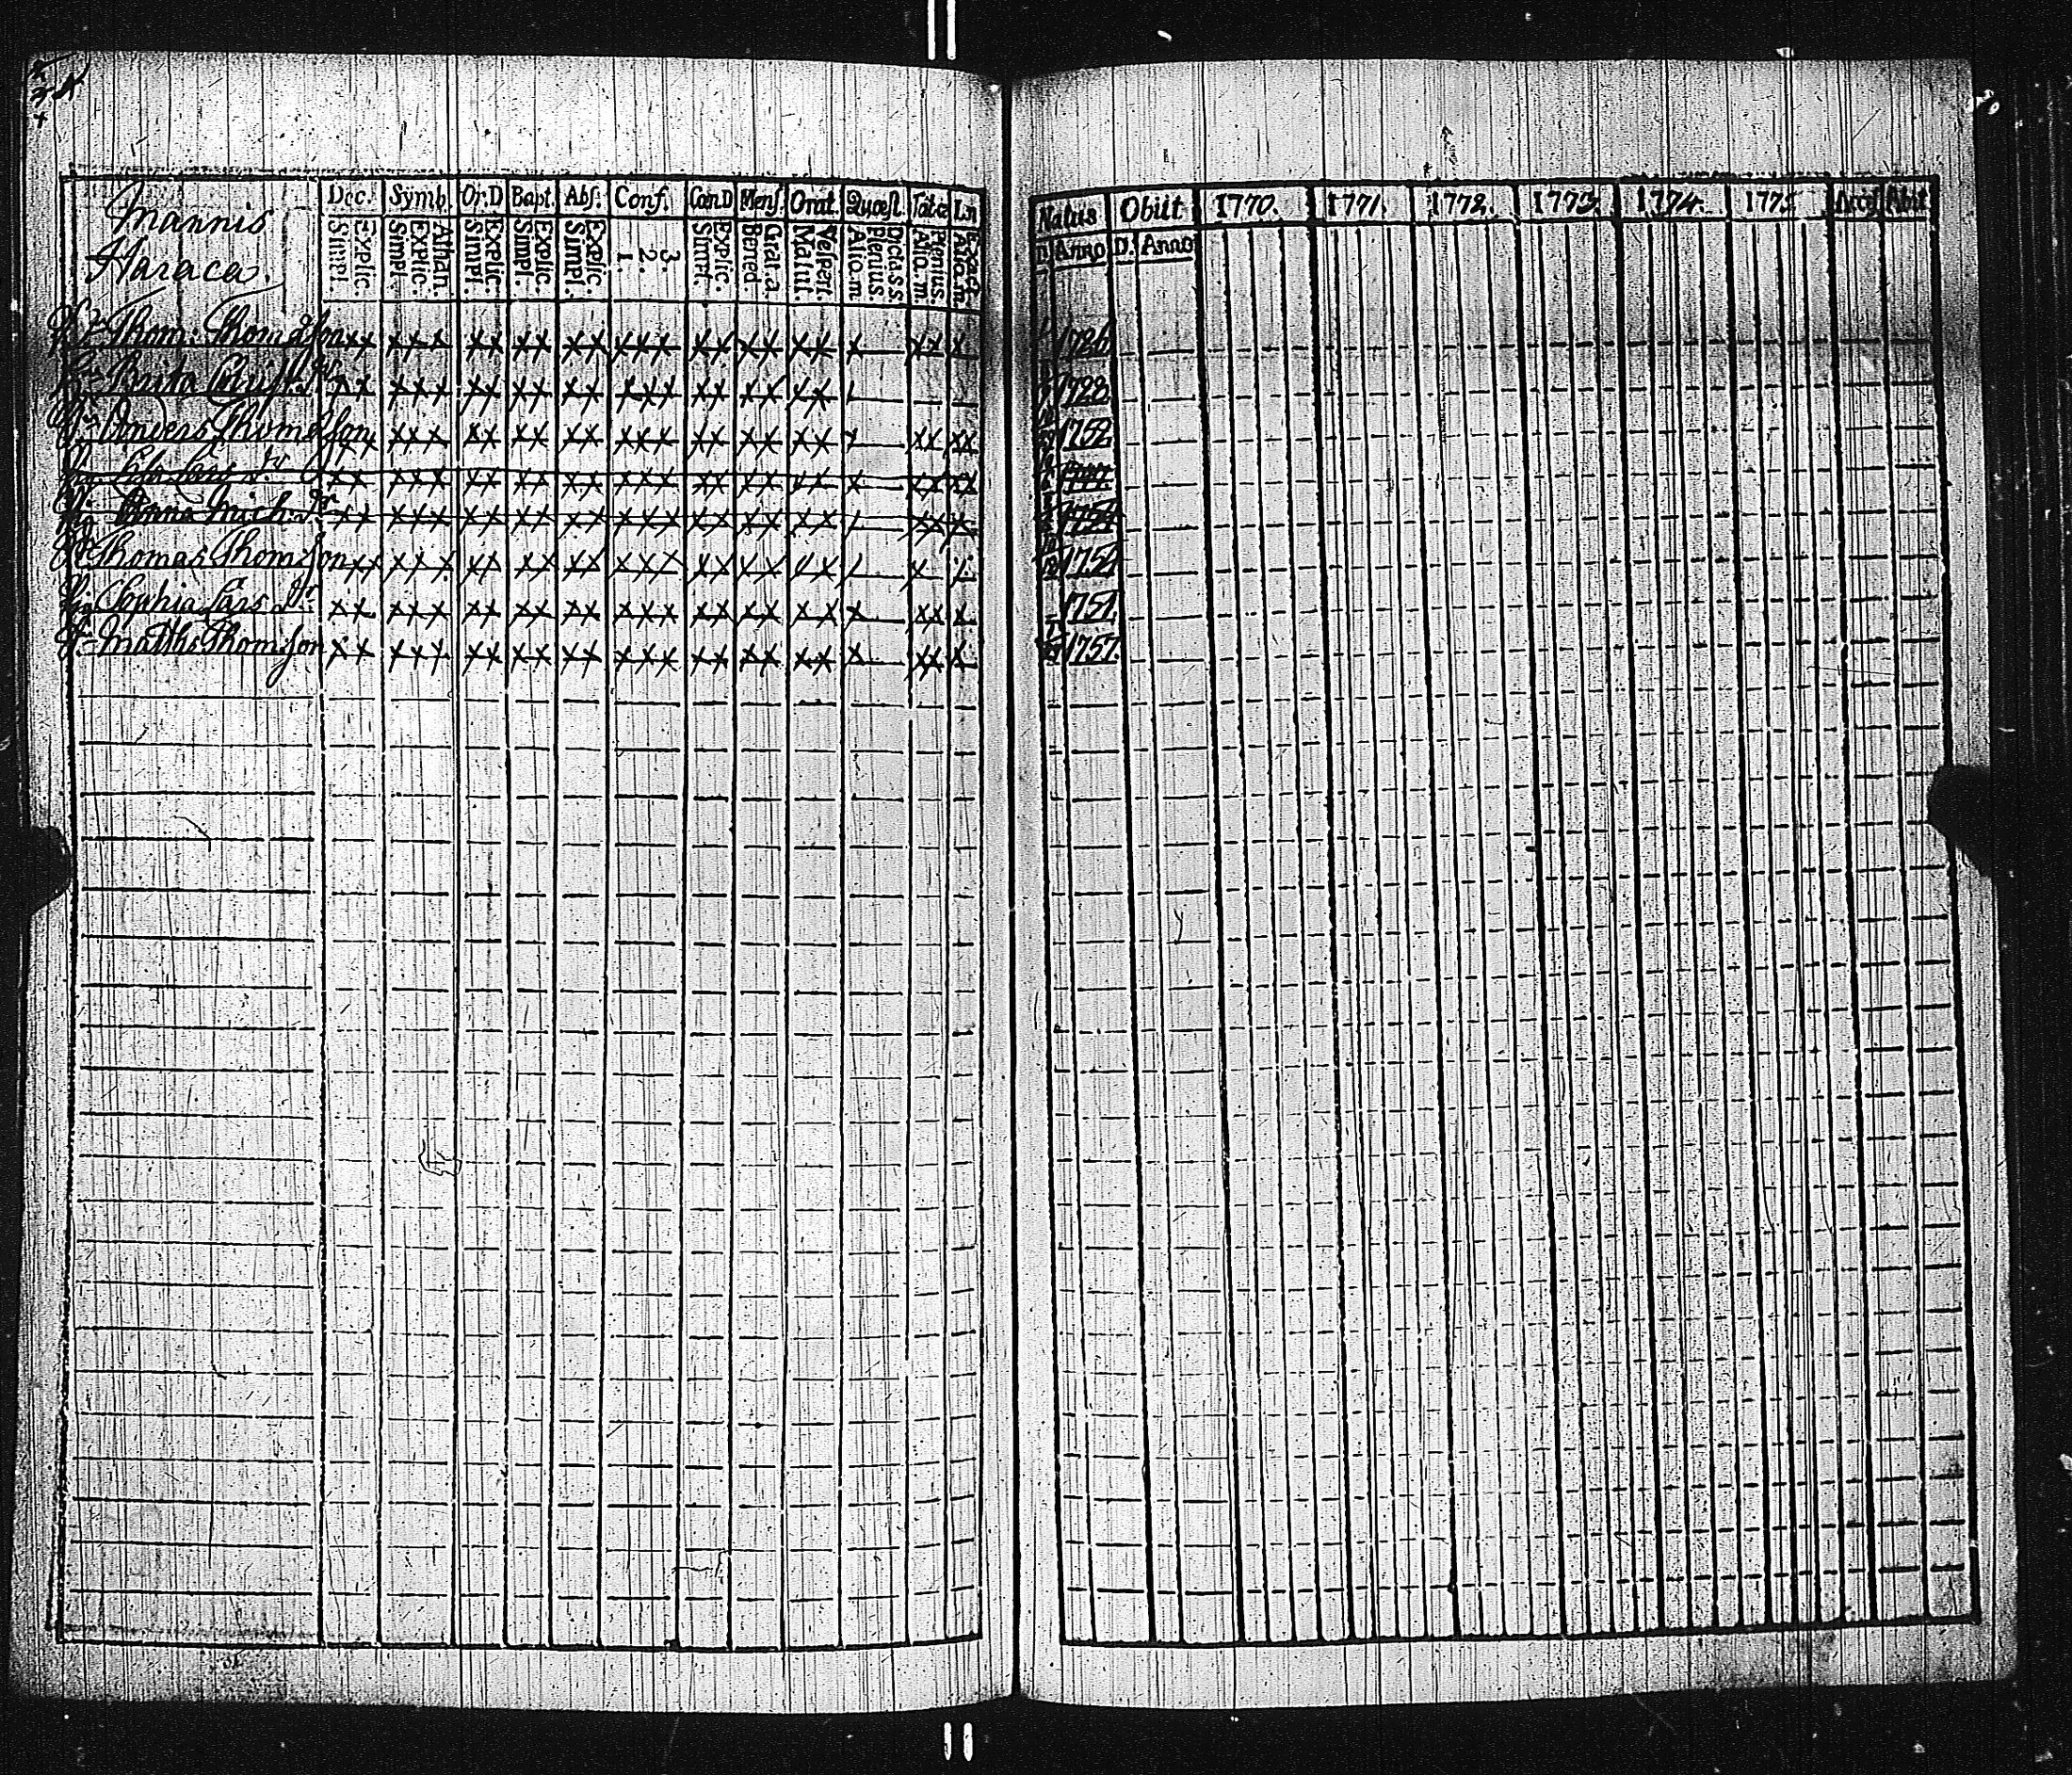 Mannis
Haraca.
Dec. Symb. Or.D Bapt. Abs. Conf. Can.D Mens. Orat. Quæst. Tabæ In
Explic. Simpl.
Athan. Explic. Simpl.
Explic. Simpl.
Explic. Simpl.
Explic. Simpl.
3. 2. 1.
Explic. Simpl.
Grat. a Bened
Vespert. Matut.
Dicta.s.s. Plenius Alio. m
Plenius. Alio. m
Exact. Alio. m.
Thom. Thomasson xx xxx xx xx xx xxx xx xx xx x xx x
Brita Christ. dr xx xxx xx xx xx xxx xx xx xx
Anders Thomasson xx xxx xx xx xx xxx xx xx xx xx xx
Lars dr xx xxx xx xx xx xxx xx xx xx x xx xx
Anna Mich. dr xx xxx xx xx xx xxx xx xx xx xx x
Thomas Thomsson xx xxx xx xx xx xxx xx xx xx x
Sophia Lars dr xx xxx xx xx xx xxx xx xx xx x xx x
Matths Thomsson xx xxx xx xx xx xxx xx xx xx x xx x
Natus Obiit 1770. 1771. 1772. 1773. 1774. 1775. Acces Abit
D. Anno D. Anno
1726
1728
1752
1754
1757.